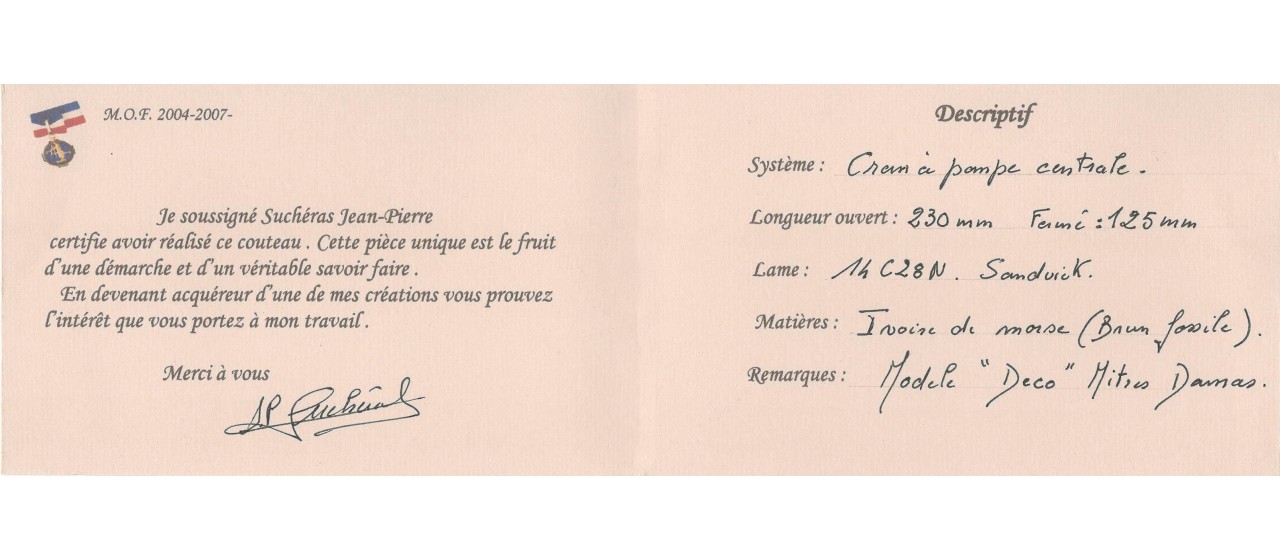 M.O.F. 2004-2007-
Je soussigné Suchéras Jean-Pierre
certifie avoir réalisé ce couteau . Cette pièce unique est le fruit
d'une démarche et d'un véritable savoir faire .
En devenant acquéreur d'une de mes créations vous prouvez
l'intérêt que vous portez à mon travail .
Merci à vous
J.P Suchéras
Descriptif
Système : Cran à pompe centrale .
Longueur ouvert : 230 mm Fermé : 125 mm
Lame : 14 C28N . Sandvick .
Matières : Ivoire de morse (Brun fossile) .
Remarques : Modele "Deco" Mitres Damas .